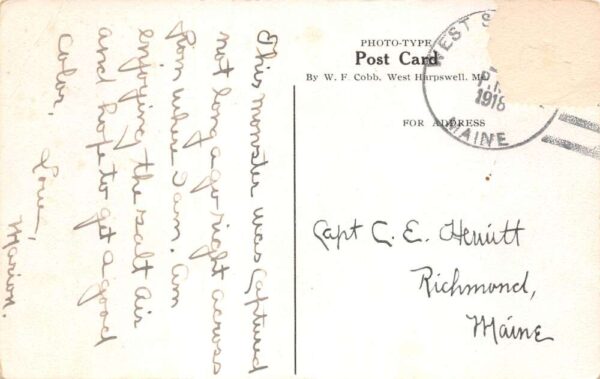 This monster was captured
not long ago right across
from where I am. Am
enjoying the salt air
and hope to get a good
color. Love,
Marion.
PHOTO-TYPE
Post Card
By W. F. Cobb, West Harpswell, M
FOR ADDRESS
WEST S
P.M
1918
MAINE
Capt C. E. Hewitt
Richmond,
Maine